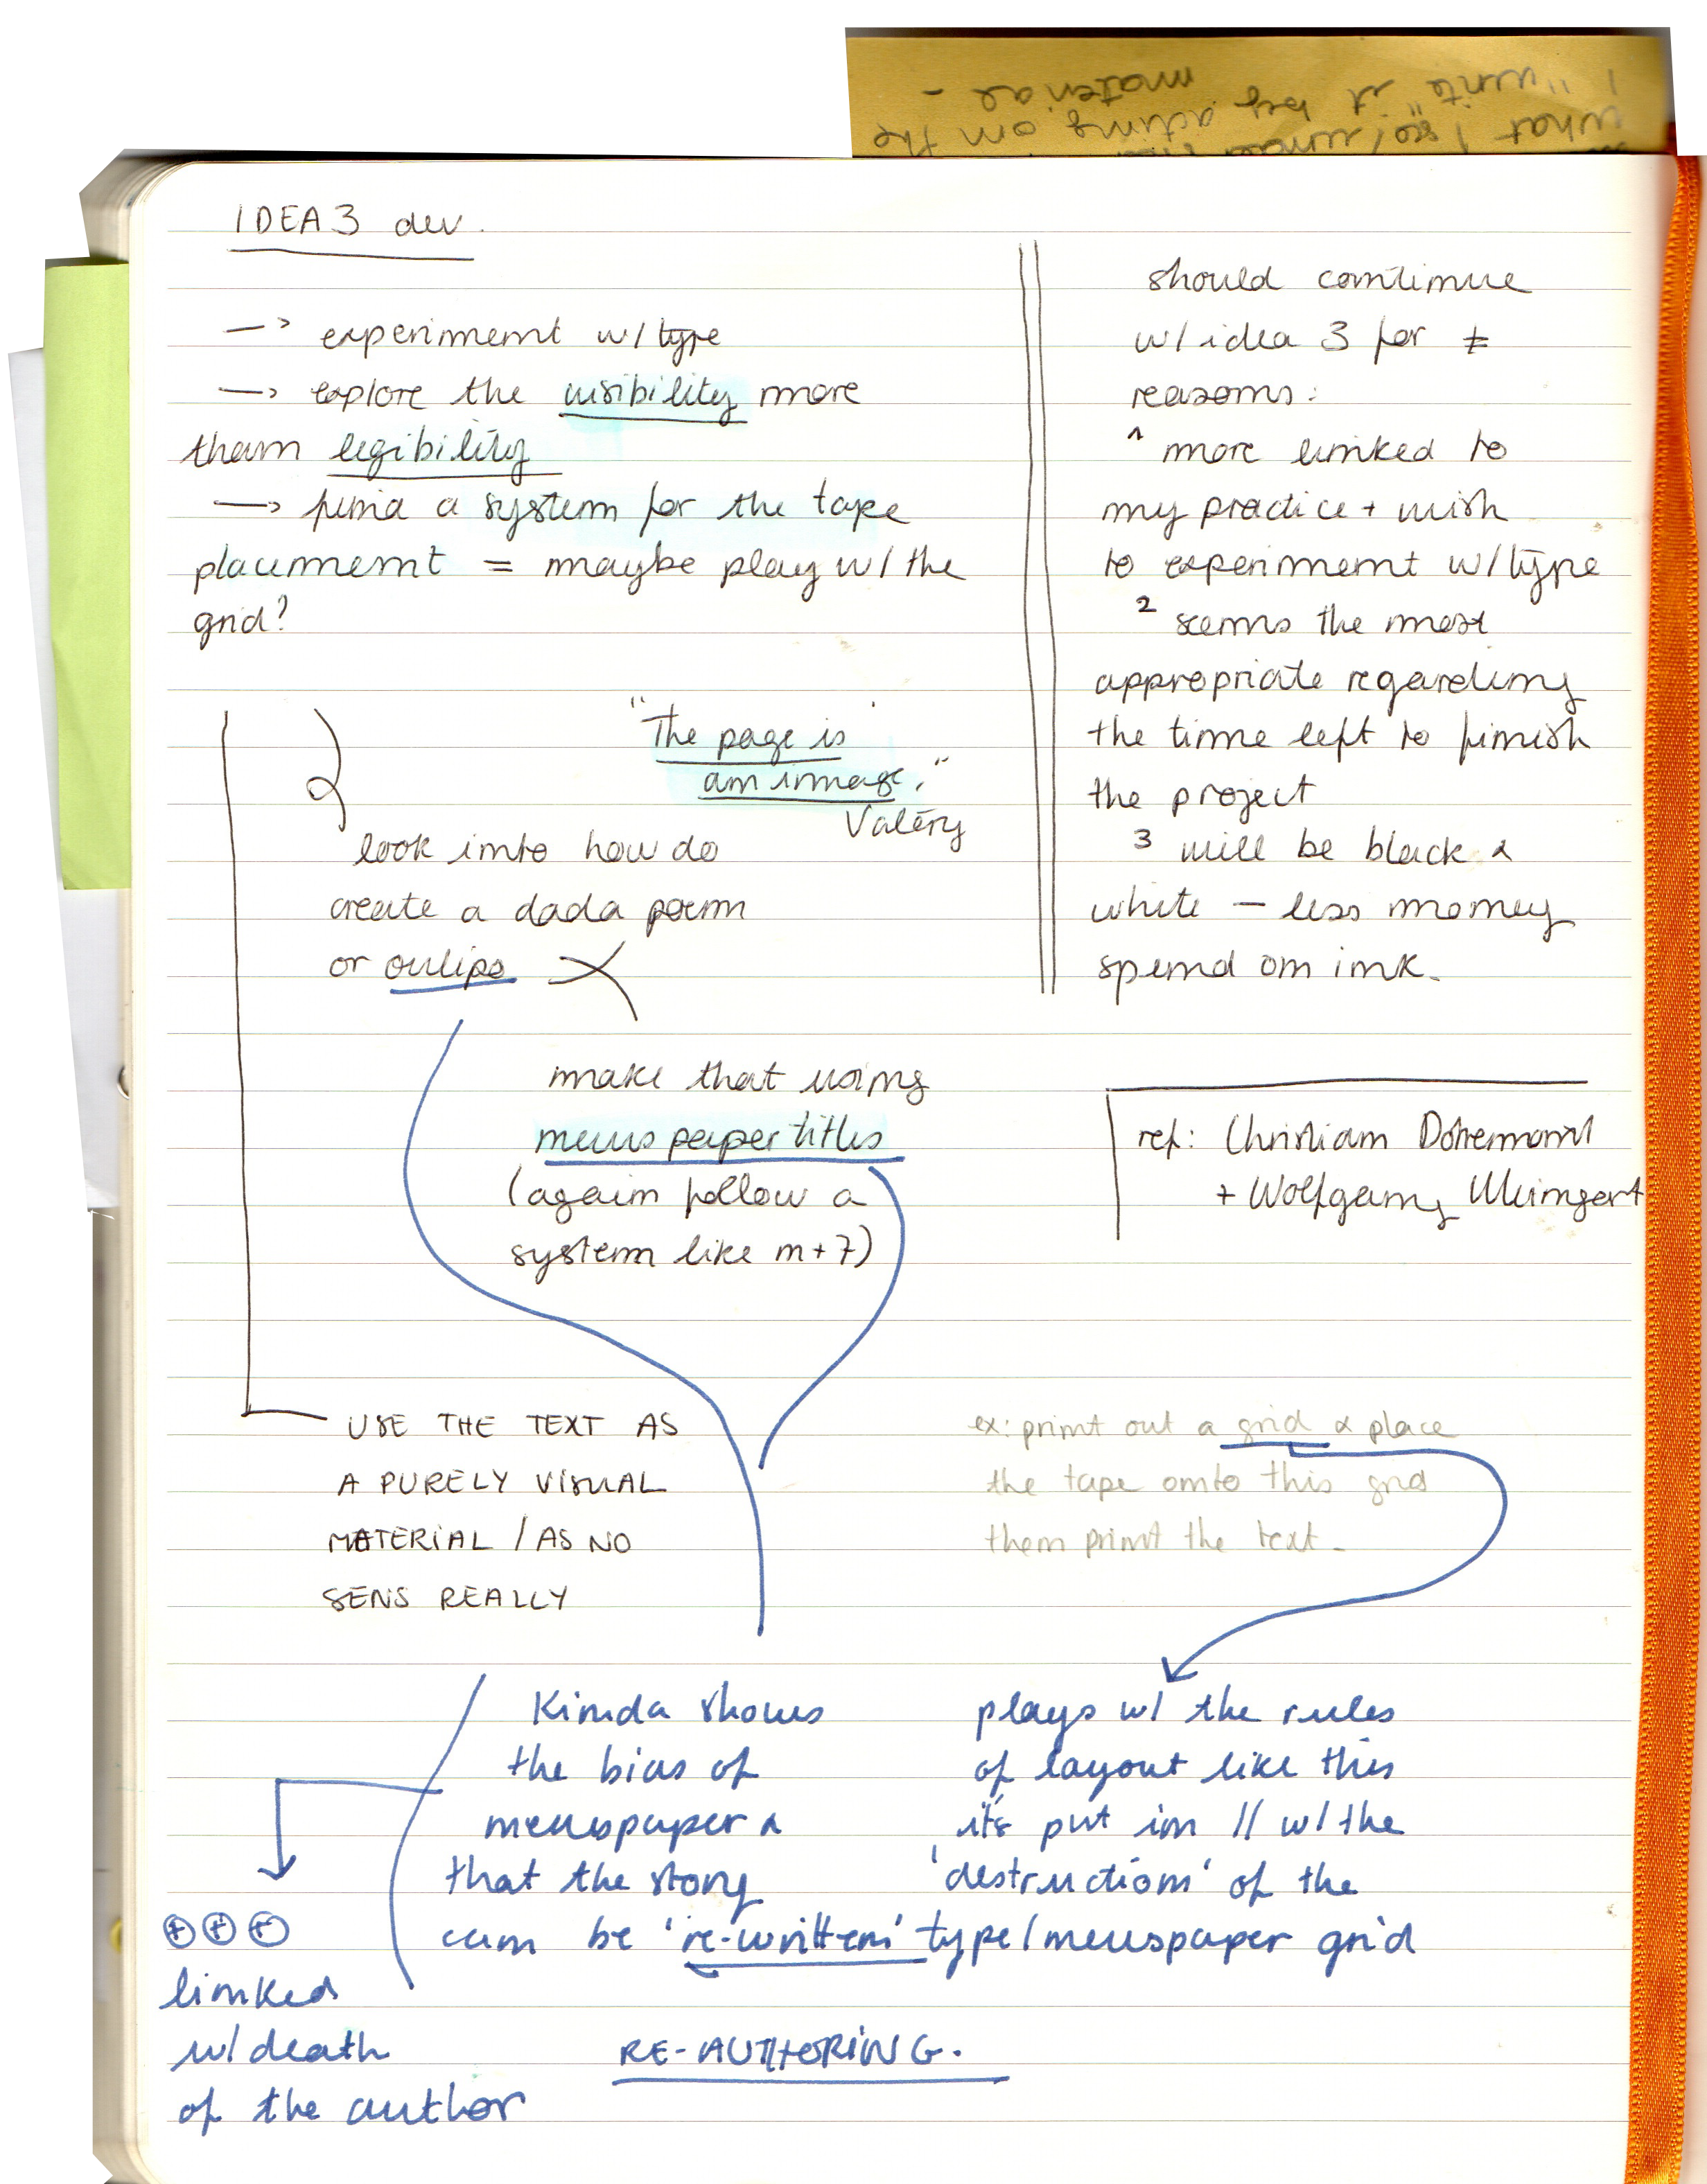 IDEA 3 dev.
—> experiment w/ type
—> explore the visibility more
than legibility
—> find a system for the tape
placement = maybe play w/ the
grid?
"The page is
an image."
Valéry
look into how do
create a dada poem
or oulipo
make that using
news paper titles
(again follow a
system like n+7)
USE THE TEXT AS
A PURELY VISUAL
MATERIAL / AS NO
SENS REALLY
should continue
w/ idea 3 for ≠
reasons:
1 more linked to
my practice + wish
to experiment w/ type
2 seems the most
appropriate regarding
the time left to finish
the project
3 will be black &
white — less money
spend on ink.
ref: Christian Dotremont
+ Wolfgang Weingart
ex: print out a grid & place
the tape onto this grid
then print the text.
Kinda shows
the bias of
newspaper &
that the story
can be 're-written'
plays w/ the rules
of layout like this
it's put in // w/ the
'destruction' of the
type/newspaper grid
+ + +
linked
w/ death
of the author
RE-AUTHORING.
what I see/
I "write" it by acting on the
material -